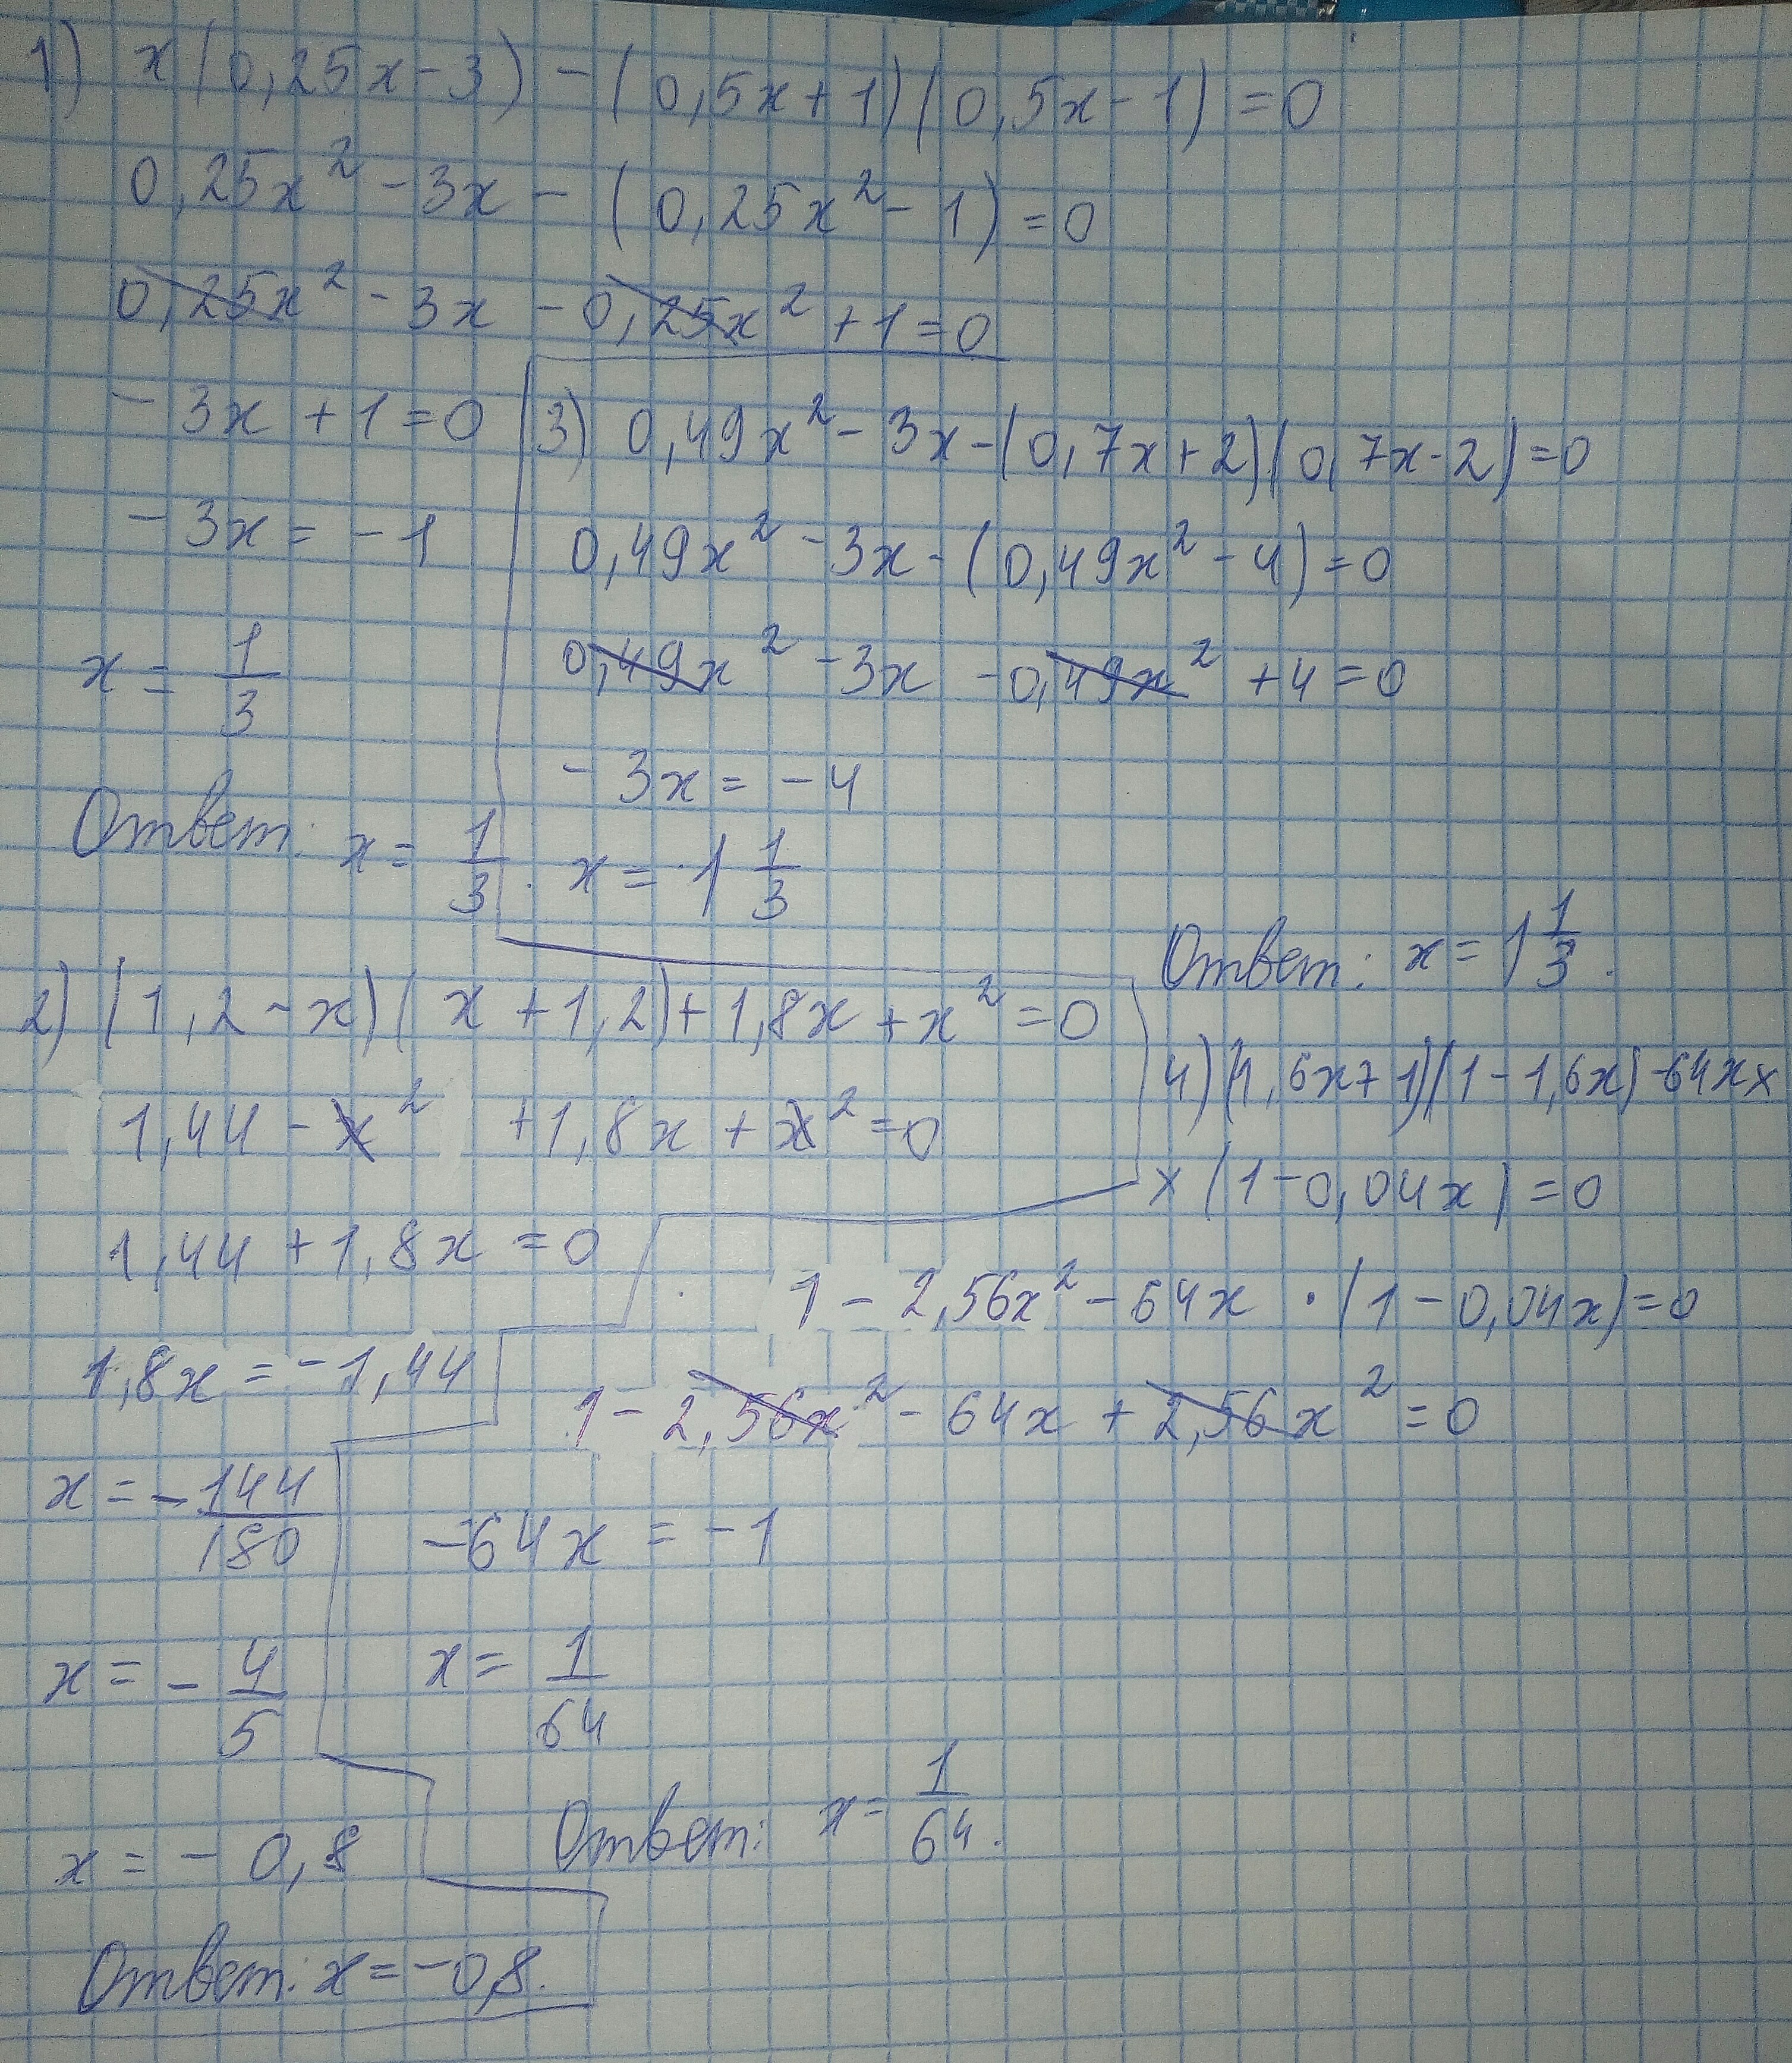 1) x(0,25x-3)-(0,5x+1)(0,5x-1)=0
0,25x²-3x-(0,25x²-1)=0
0,25x²-3x-0,25x²+1=0
-3x+1=0
-3x=-1
x=1/3
Ответ: x=1/3.
3) 0,49x²-3x-(0,7x+2)(0,7x-2)=0
0,49x²-3x-(0,49x²-4)=0
0,49x²-3x-0,49x²+4=0
-3x=-4
x=1 1/3
Ответ: x=1 1/3.
2) (1,2-x)(x+1,2)+1,8x+x²=0
1,44-x²+1,8x+x²=0
1,44+1,8x=0
1,8x=-1,44
x=-144/180
x=-4/5
x=-0,8
Ответ: x=-0,8.
4) (1,6x+1)(1-1,6x)-64x×
×(1-0,04x)=0
1-2,56x²-64x·(1-0,04x)=0
1-2,56x²-64x+2,56x²=0
-64x=-1
x=1/64
Ответ: x=1/64.